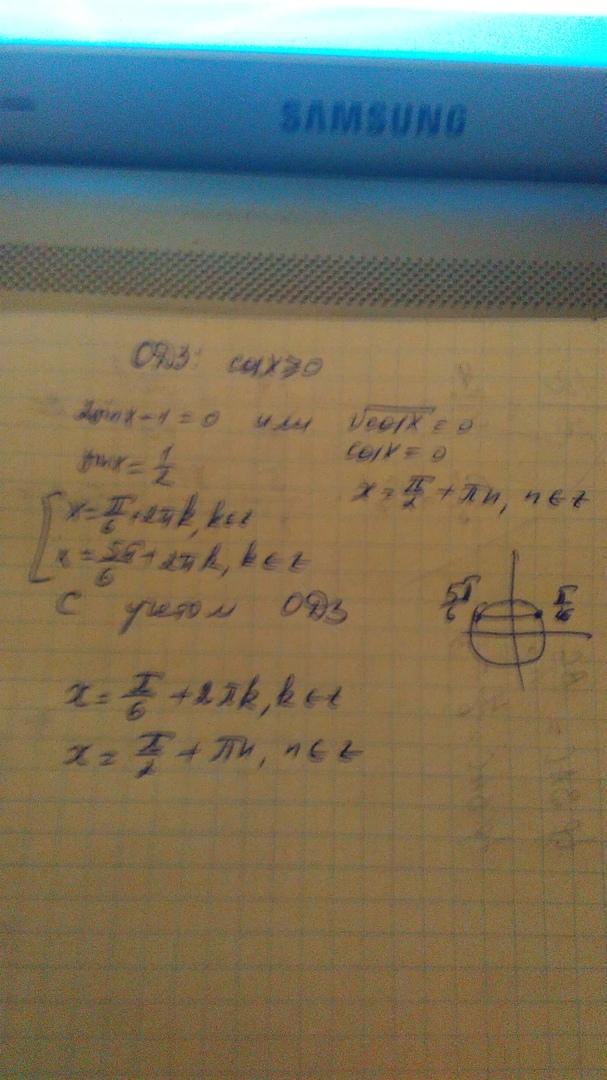 SAMSUNG
ОДЗ: cosx⩾0
2sinx-1=0 или √cosx=0
sinx=1/2 cosx=0
x=π/6+2πk, k∈z x=π/2+πn, n∈z
x=5π/6+2πk, k∈z
С учетом ОДЗ
5π/6 π/6
x=π/6+2πk, k∈z
x=π/2+πn, n∈z